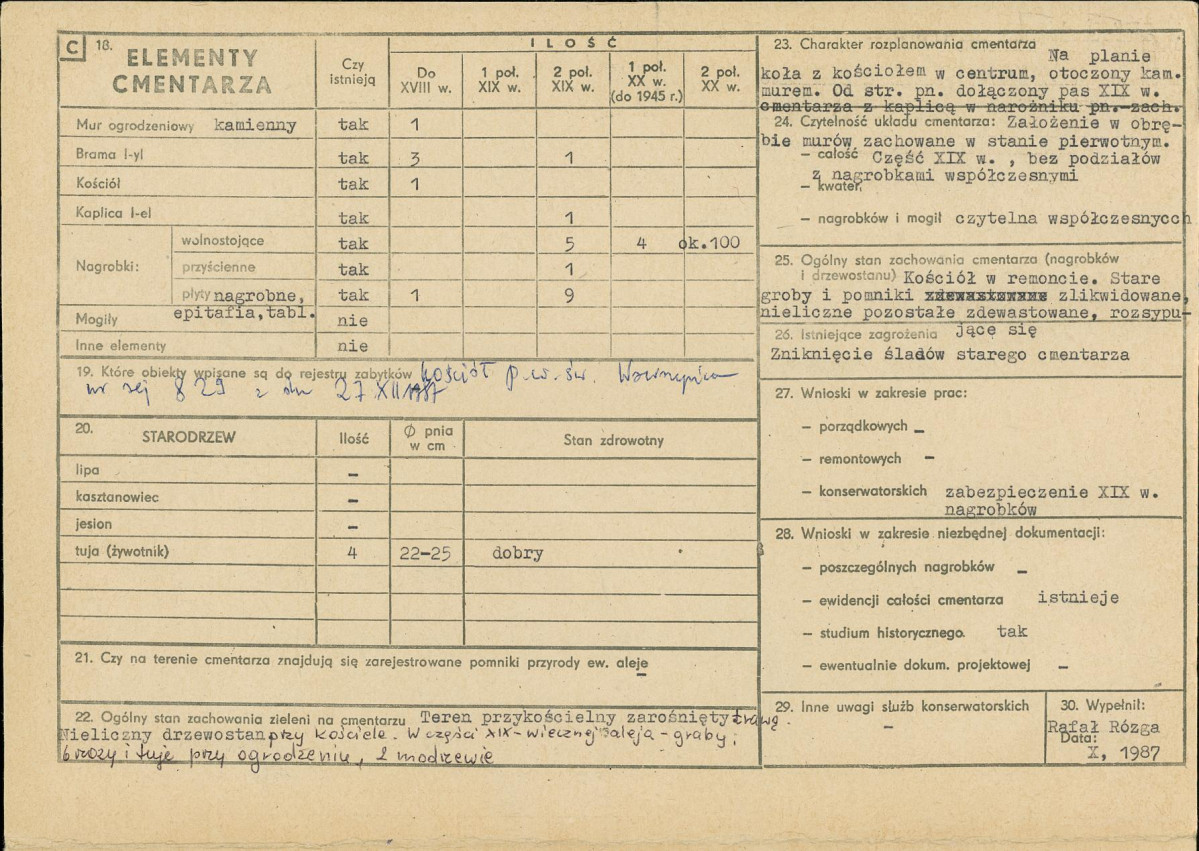 C 18. ELEMENTY CMENTARZA
Czy istnieją
ILOŚĆ
Do XVIII w.
1 poł. XIX w.
2 poł. XIX w.
1 poł. XX w. (do 1945 r.)
2 poł. XX w.
Mur ogrodzeniowy kamienny tak 1
Brama I-yl tak 3 1
Kościół tak 1
Kaplica I-el tak 1
Nagrobki:
wolnostojące tak 5 4 ok.100
przyścienne tak 1
płyty nagrobne, tak 1 9
epitafia, tabl.
Mogiły nie
Inne elementy nie
19. Które obiekty wpisane są do rejestru zabytków kościół p.w. św.
nr rej 829 z dn 27 XII 1987
20. STARODRZEW Ilość Ø pnia w cm Stan zdrowotny
lipa –
kasztanowiec –
jesion –
tuja (żywotnik) 4 22-25 dobry
21. Czy na terenie cmentarza znajdują się zarejestrowane pomniki przyrody ew. aleje
–
22. Ogólny stan zachowania zieleni na cmentarzu Teren przykościelny zarośnięty trawą.
Nieliczny drzewostan przy kościele. W części XIX-wiecznej aleja - graby,
brzozy i tuje przy ogrodzeniu, 2 modrzewie
23. Charakter rozplanowania cmentarza Na planie
koła z kościołem w centrum, otoczony kam.
murem. Od str. pn. dołączony pas XIX w.
cmentarza z kaplicą w narożniku pn.-zach.
24. Czytelność układu cmentarza: Założenie w obrę-
bie murów zachowane w stanie pierwotnym.
– całość Część XIX w. , bez podziałów
z nagrobkami współczesnymi
– kwater,
– nagrobków i mogił czytelna współczesnycch
25. Ogólny stan zachowania cmentarza (nagrobków
i drzewostanu) Kościół w remoncie. Stare
groby i pomniki zdewastowane zlikwidowane,
nieliczne pozostałe zdewastowane, rozsypu-
26. Istniejące zagrożenia jące się
Zniknięcie śladów starego cmentarza
27. Wnioski w zakresie prac:
– porządkowych –
– remontowych –
– konserwatorskich zabezpieczenie XIX w.
nagrobków
28. Wnioski w zakresie niezbędnej dokumentacji:
– poszczególnych nagrobków –
– ewidencji całości cmentarza istnieje
– studium historycznego. tak
– ewentualnie dokum. projektowej –
29. Inne uwagi służb konserwatorskich
–
30. Wypełnił:
Rafał Rózga
Data:
X, 1987